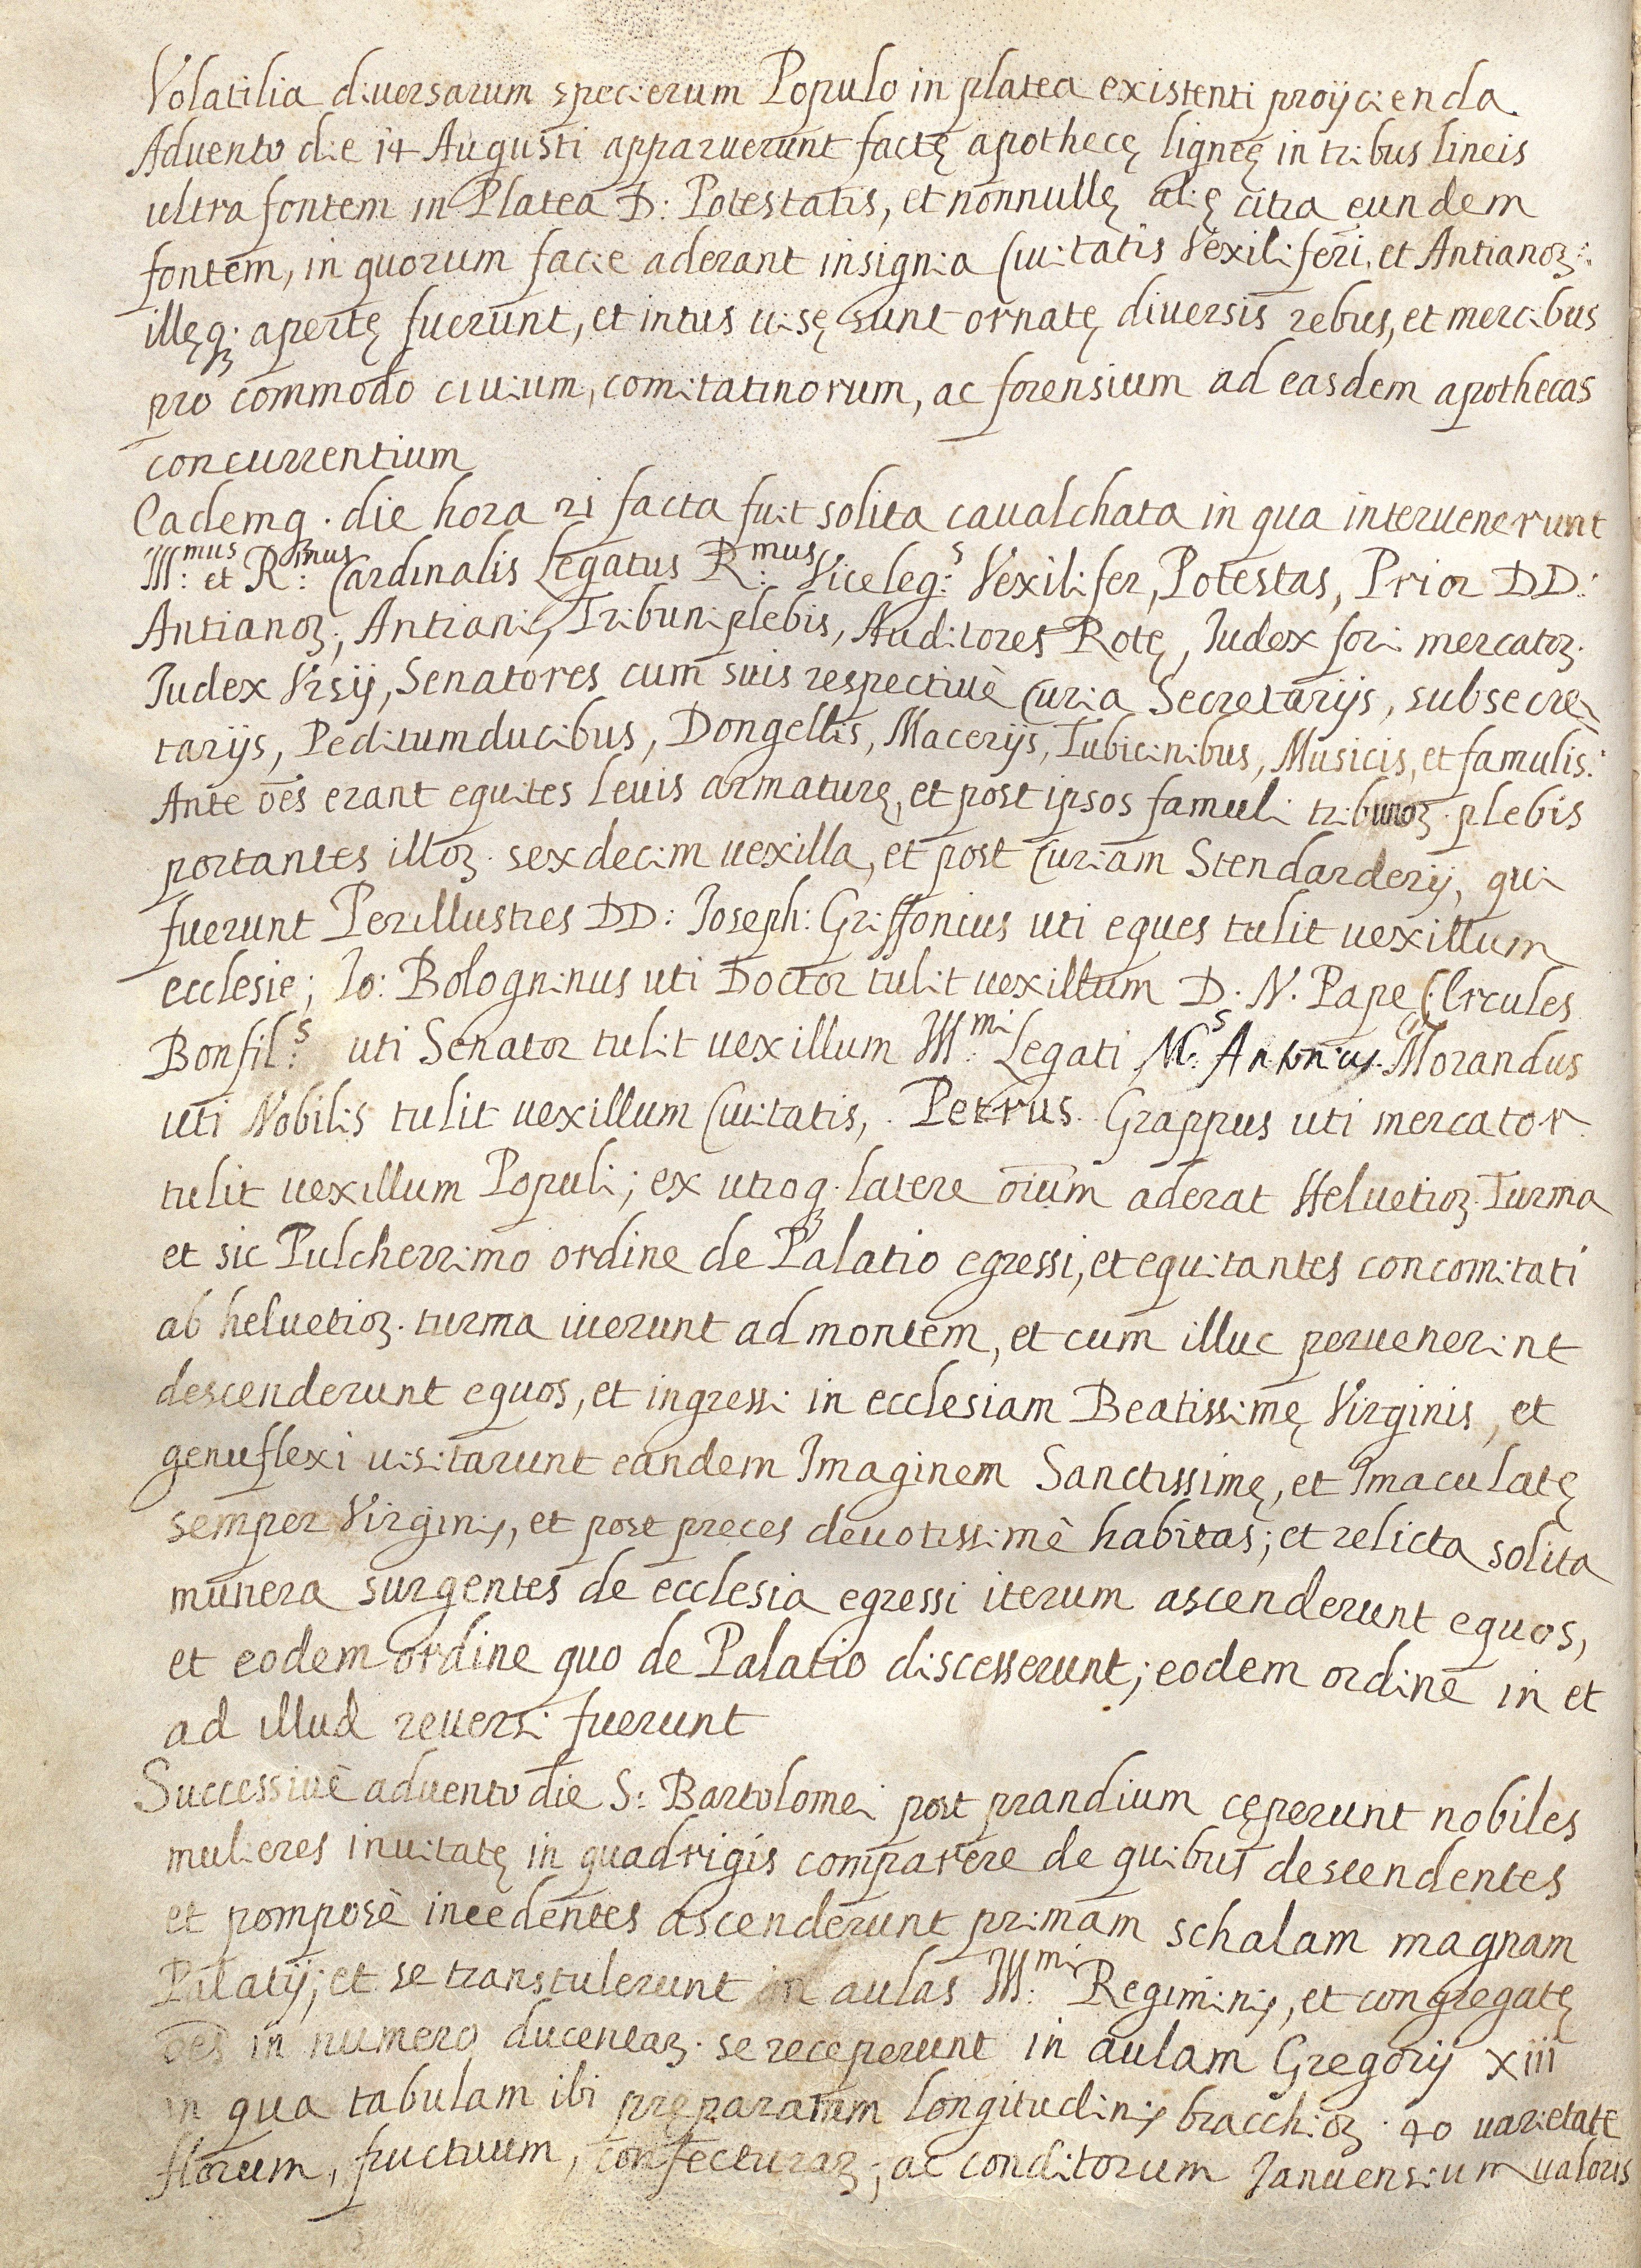 Volatilia diuersarum specierum Populo in platea existenti proijcienda
Aduento die 14 Augusti apparuerunt factę apothecę ligneę in tribus lineis
ultra fontem in Platea D: Potestatis, et nonnullę alię citra eundem
fontem, in quorum facie aderant insignia Ciuitatis Vexiliferi, et Antianoꝝ:
illęqꝫ apertę fuerunt, et intus uisę sunt ornatę diuersis rebus, et mercibus
pro commodo ciuium, comitatinorum, ac forensium ad easdem apothecas
concurrentium
Eademqꝫ die hora 21 facta fuit solita caualchata in qua interuenerunt
Ill:mus et R:mus Cardinalis Legatus R:mus Viceleg:s Vexilifer, Potestas, Prior DD:
Antianoꝝ, Antiani, Tribuni plebis, Auditores Rotę, Iudex fori mercatoꝝ.
Iudex Vrsij, Senatores cum suis respectiuè Curia Secretarijs, subsecre
tarijs, Peditumducibus, Dongellis, Macerijs, Tubicinibus, Musicis, et famulis:
Ante oēs erant equites leuis armaturę, et post ipsos famuli tribunoꝝ plebis
portantes illoꝝ sexdecim uexilla, et post Curiam Stendarderij, qui
fuerunt Perillustres DD: Ioseph: Griffonius uti eques tulit uexillum
ecclesie; Io: Bologninus uti Doctor tulit uexillum D. N. Pape; Ercules
Bonfil:s uti Senator tulit uexillum Ill:mi Legati M:s Antonius Morandus
uti Nobilis tulit uexillum Ciuitatis, Petrus Grappus uti mercator
tulit uexillum Populi; ex utroqꝫ latere oīum aderat Helvetioꝝ Turma
et sic Pulcherrimo ordine de Palatio egressi, et equitantes concomitati
ab heluetioꝝ turma iuerunt ad montem, et cum illuc peruenerint
descenderunt equos, et ingressi in ecclesiam Beatissimę Virginis, et
genuflexi uisitarunt eandem Imaginem Sanctissimę, et Imaculatę
semper Virginis, et post preces deuotissimè habitas; et relicta solita
munera surgentes de ecclesia egressi iterum ascenderunt equos,
et eodem ordine quo de Palatio discesserunt; eodem ordine in et
ad illud reuersi fuerunt
Successiuè aduento die S: Bartolomei post prandium cęperunt nobiles
mulieres inuitatę in quadrigis comparere de quibus descendentes
et pomposè incedentes ascenderunt primam schalam magnam
Palatij; et se transtulerunt in aulas Ill:mi Regiminis, et congregatę
oēs in numero ducentaꝝ se receperunt in aulam Gregorij xiii
in qua tabulam ibi pręparatam longitudinis bracchioꝝ 40 uarietate
florum, fructuum, confecturaꝝ; ac conditorum Ianuensium ualoris